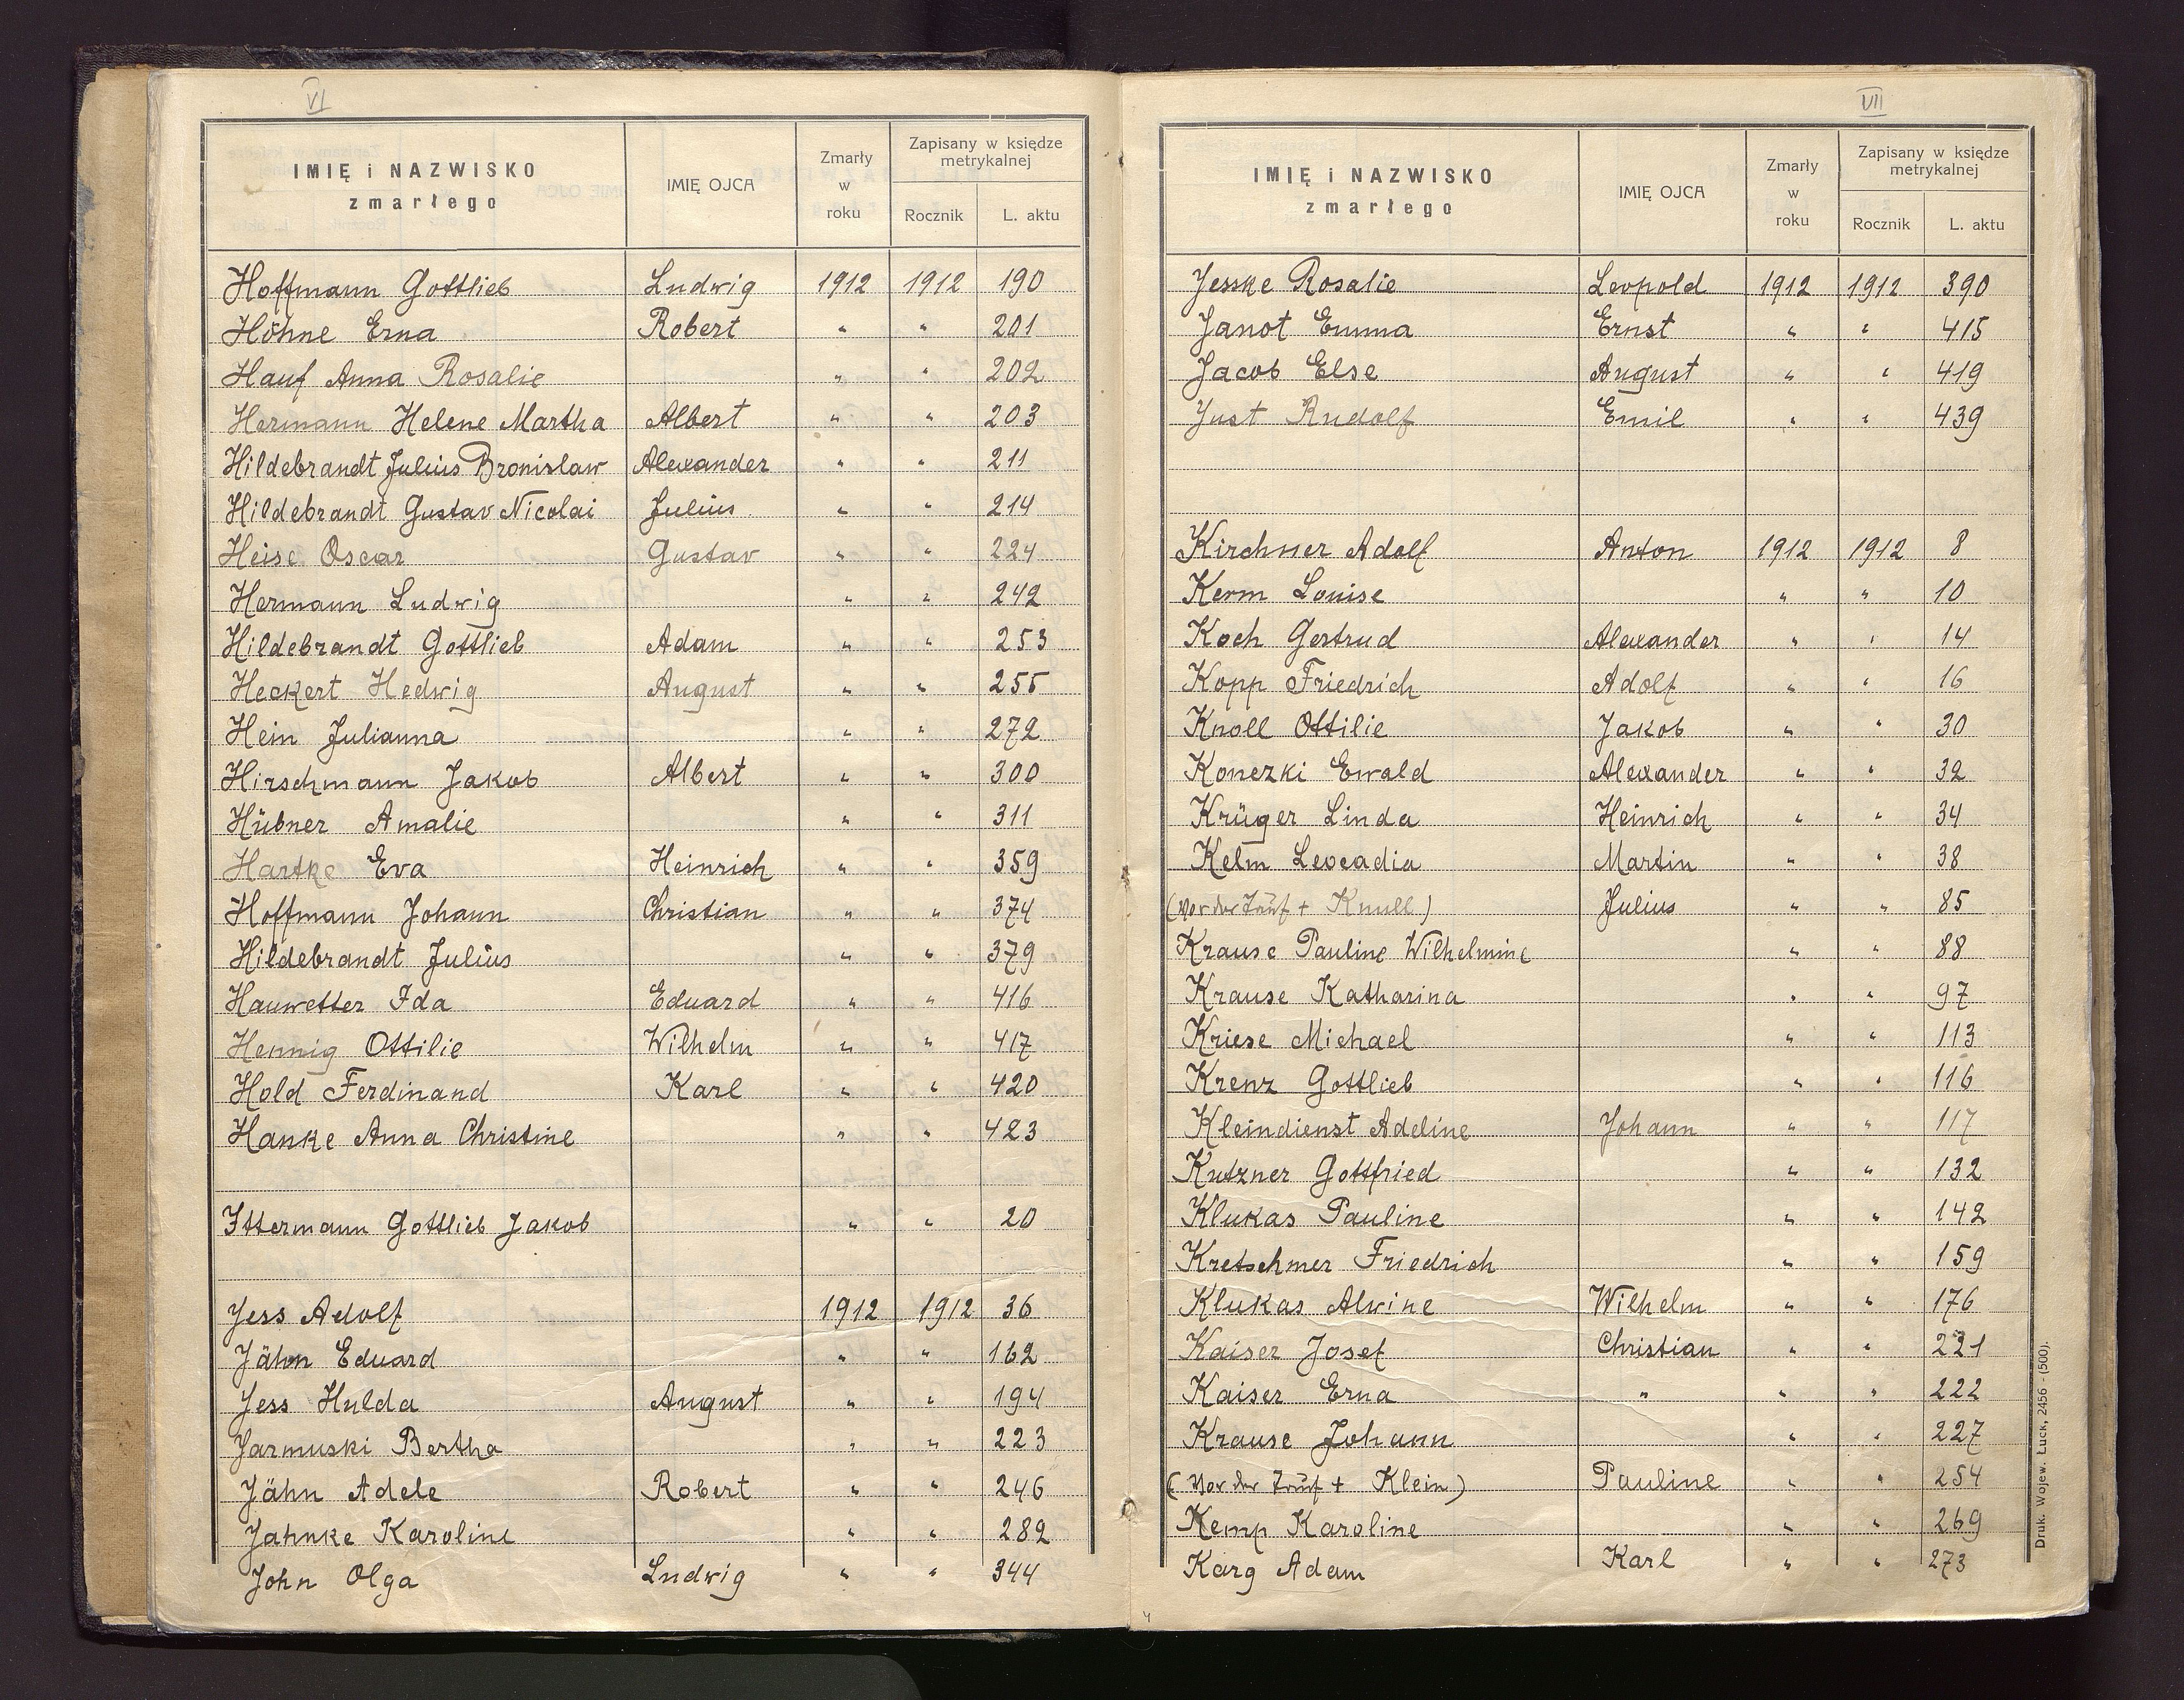 VI
IMIĘ i NAZWISKO zmarłego | IMIĘ OJCA | Zmarły w roku | Zapisany w księdze metrykalnej
Rocznik | L. aktu
Hoffmann Gottlieb Ludwig 1912 1912 190
Höhne Erna Robert " " 201
Hauf Anna Rosalie " " 202
Hermann Helene Martha Albert " " 203
Hildebrandt Julius Bronislaw Alexander " " 211
Hildebrandt Gustav Nicolai Julius " " 214
Heise Oscar Gustav " " 224
Hermann Ludwig " " 242
Hildebrandt Gottlieb Adam " " 253
Heckert Hedwig August " " 255
Hein Julianna " " 272
Hirschmann Jakob Albert " " 300
Hübner Amalie " " 311
Hartke Eva Heinrich " " 359
Hoffmann Johann Christian " " 374
Hildebrandt Julius " " 379
Hauwetter Ida Eduard " " 416
Hennig Ottilie Wilhelm " " 417
Hold Ferdinand Karl " " 420
Hanke Anna Christine " " 423
Ittermann Gottlieb Jakob " " 20
Jess Adolf 1912 1912 36
Jähn Eduard " " 162
Jess Hulda August " " 194
Jarmuski Bertha " " 223
Jähn Adele Robert " " 246
Jahnke Karoline " " 282
John Olga Ludwig " " 344
VII
IMIĘ i NAZWISKO zmarłego | IMIĘ OJCA | Zmarły w roku | Zapisany w księdze metrykalnej
Rocznik | L. aktu
Jesske Rosalie Leopold 1912 1912 390
Janot Emma Ernst " " 415
Jacob Else August " " 419
Just Rudolf Emil " " 439
Kirchner Adolf Anton 1912 1912 8
Kerm Louise " " 10
Koch Gertrud Alexander " " 14
Kopp Friedrich Adolf " " 16
Knoll Ottilie Jakob " " 30
Konezki Ewald Alexander " " 32
Krüger Linda Heinrich " " 34
Kelm Leocadia Martin " " 38
(vor der Tauf + Knull) Julius " " 85
Krause Pauline Wilhelmine " " 88
Krause Katharina " " 97
Kriese Michael " " 113
Krenz Gottlieb " " 116
Kleindienst Adeline Johann " " 117
Kutzner Gottfried " " 132
Klukas Pauline " " 142
Kretschmer Friedrich " " 159
Klukas Alwine Wilhelm " " 176
Kaiser Josef Christian " " 221
Kaiser Erna " " " 222
Krause Johann " " 227
(vor der Tauf + Klein) Pauline " " 254
Kemp Karoline " " 269
Karg Adam Karl " " 273
Druk. Wojew. Łuck, 2456 - (500).
4